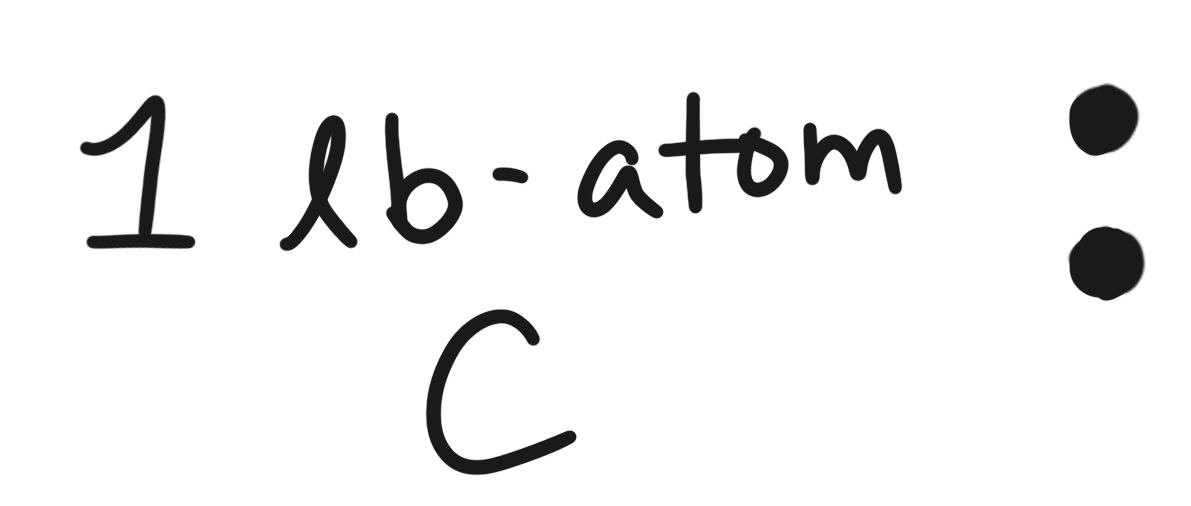 1 lb-atom :
C